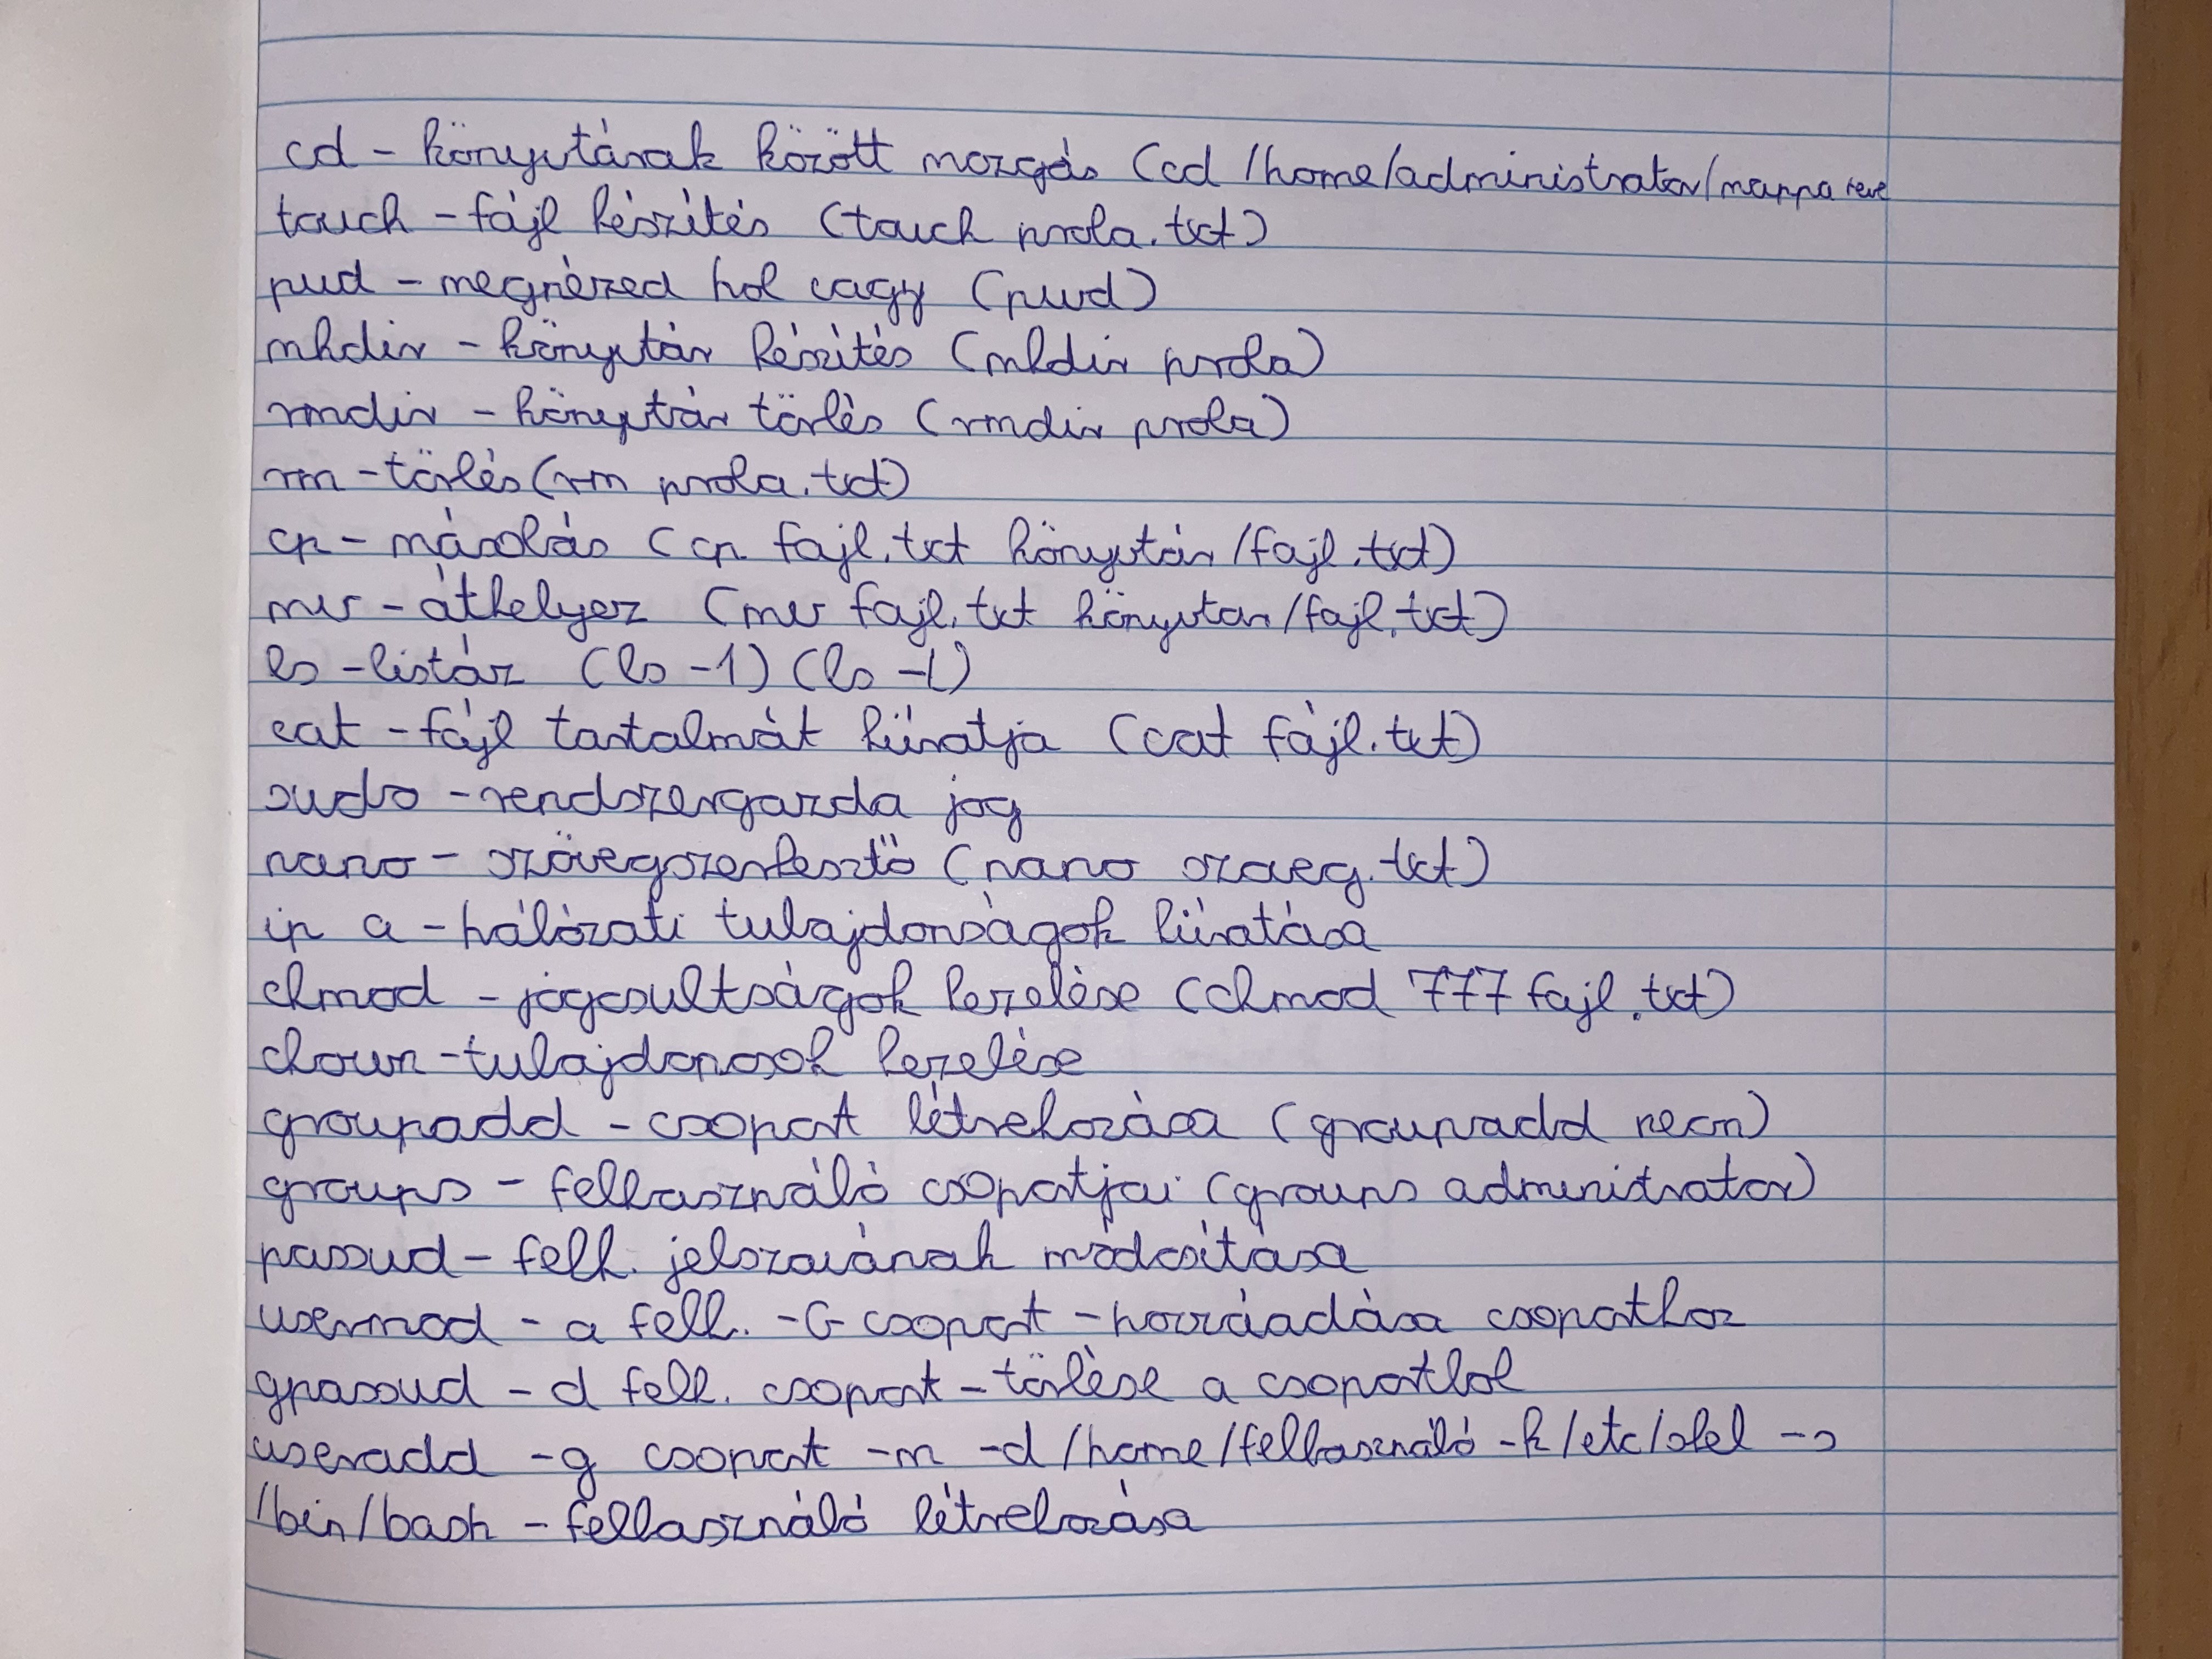 cd - könyvtárak között mozgás (cd /home/administrator/mappa neve
touch - fájl készítés (touch proba.txt)
pwd - megnézed hol vagy (pwd)
mkdir - könyvtár készítés (mkdir proba)
rmdir - könyvtár törlés (rmdir proba)
rm - törlés (rm proba.txt)
cp - másolás (cp fajl.txt könyvtár/fajl.txt)
mv - áthelyez (mv fajl.txt könyvtar/fajl.txt)
ls - listáz (ls -1) (ls -l)
cat - fájl tartalmát kiíratja (cat fájl.txt)
sudo - rendszergazda jog
nano - szövegszerkesztő (nano szoveg.txt)
ip a - hálózati tulajdonságok kiíratása
chmod - jogosultságok kezelése (chmod 777 fajl.txt)
chown - tulajdonosok kezelése
groupadd - csoport létrehozása (groupadd nem)
groups - felhasználó csoportjai (groups adminitrator)
passwd - felh. jelszavának módosítása
usermod - a felh. -G csoport - hozzáadása csoporthoz
gpasswd - d felh. csoport - törlése a csoportbol
useradd -g csoport -m -d /home/felhasználó -k /etc/skel ->
/bin/bash - felhasználó létrehozása